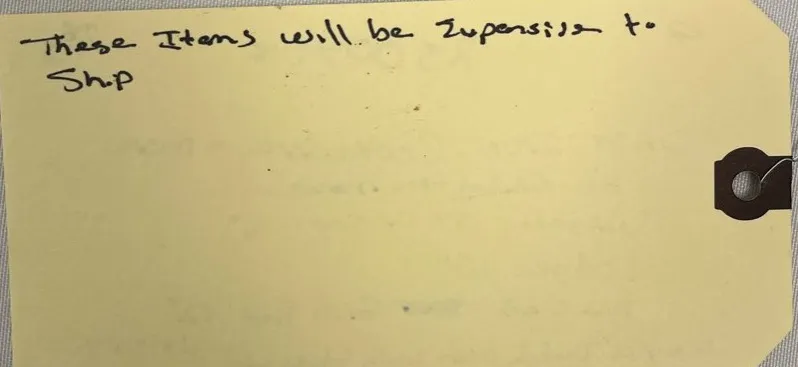 These Items will be Expensive to
Ship